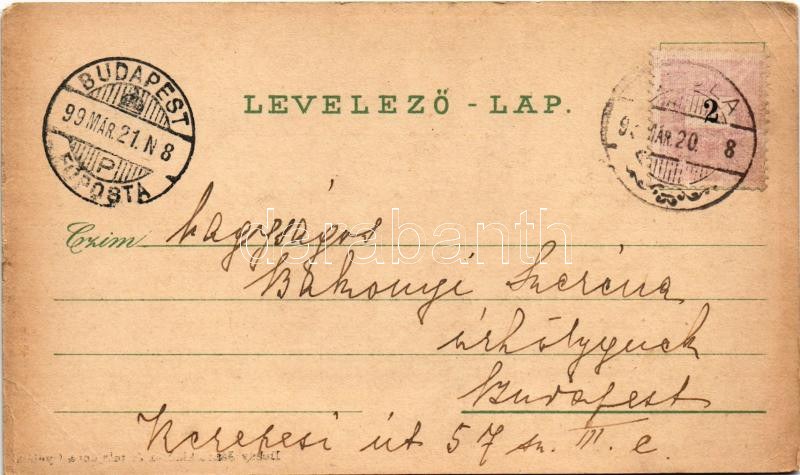 BUDAPEST
99 MÁR. 21. N 8
P
FŐPOSTA
LEVELEZŐ - LAP.
2
MÁR. 20. 8
darabanth
Czim Nagyságos
Bakonyi Szeréna
úrhölgynek
Budapest
Kerepesi út 57 sz. III. e.